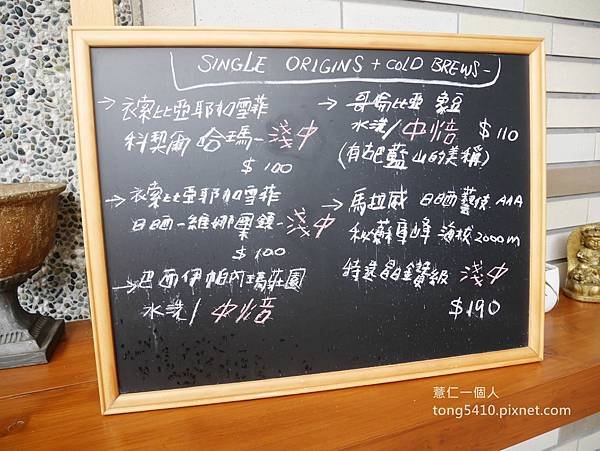 SINGLE ORIGINS + COLD BREWS-
→ 衣索比亞耶加雪菲
科契爾 哈瑪-淺中
$100
→ 衣索比亞耶加雪菲
日晒-維娜團鎮-淺中
$100
→ 巴西伊帕內瑪莊園
水洗/中焙
→ 哥倫比亞
水洗/中焙 $110
(有起藍山的美稱)
→ 馬拉威 日晒藝伎 AAA
秘蘇庫峰 海拔2000m
特晶鑽級 淺中
$190
薏仁一個人
tong5410.pixnet.com